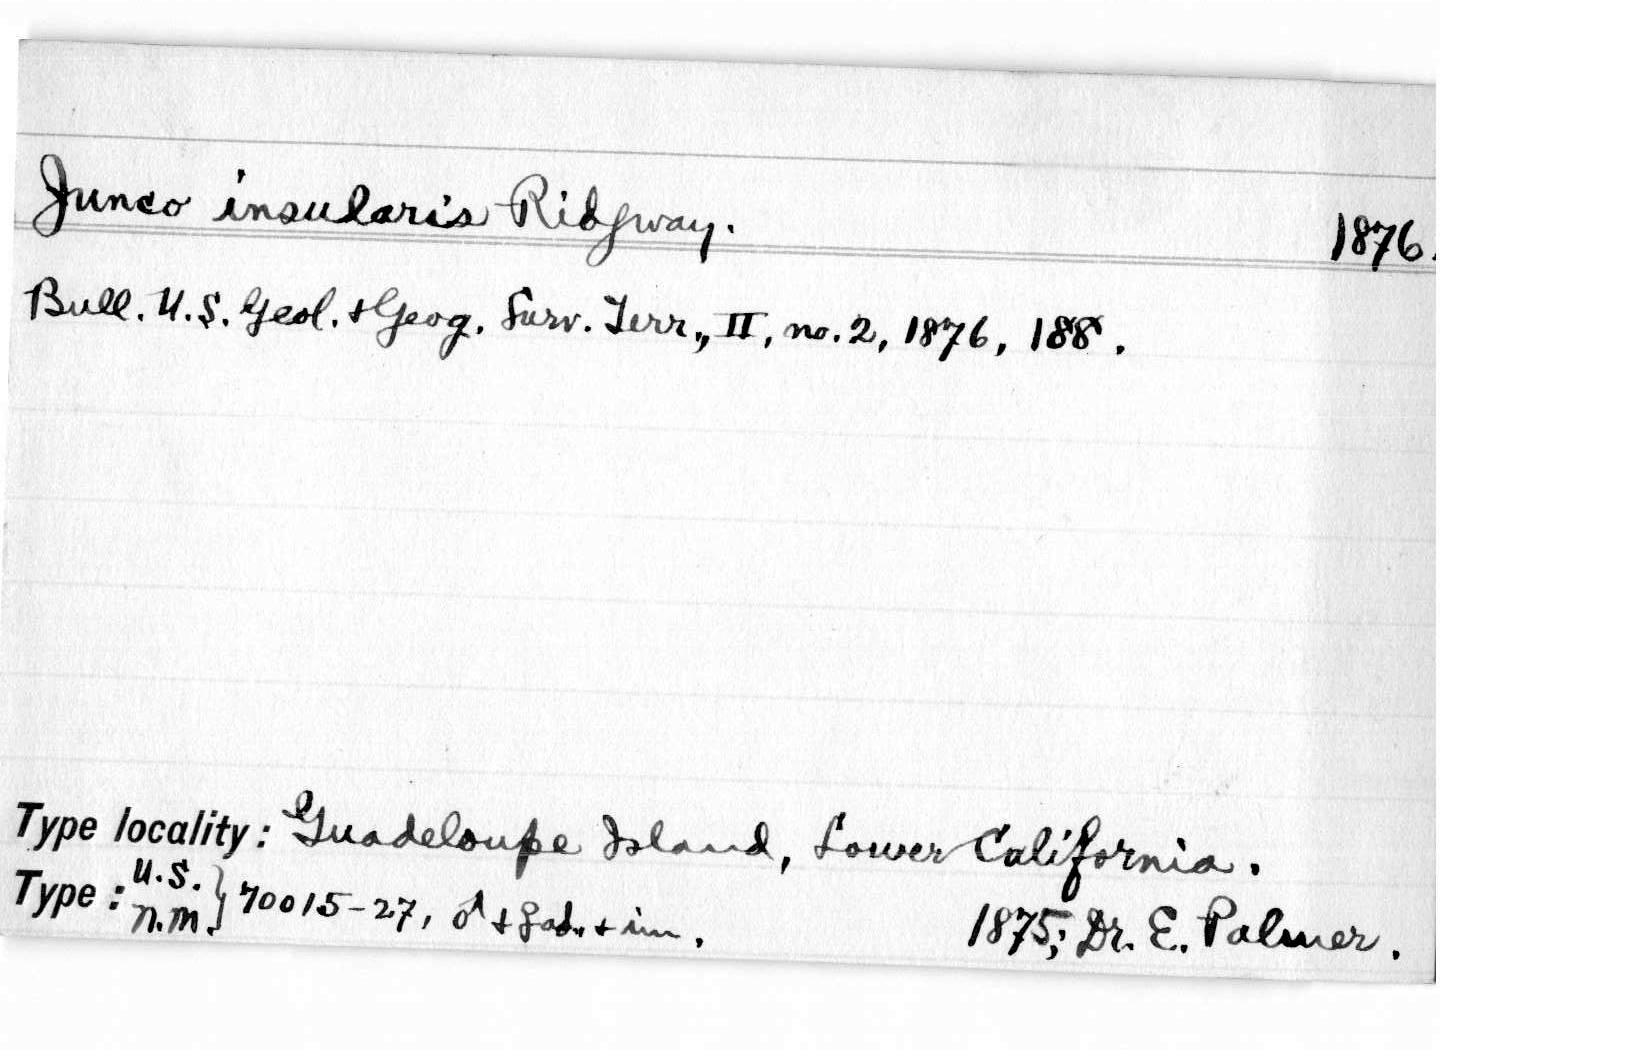 Junco insularis Ridgway. 1876.
Bull. U.S. Geol. + Geog. Surv. Terr., II, no. 2, 1876, 188.
Type locality: Guadeloupe Island, Lower California.
Type: U.S. N.M. } 70015-27, ♂ + ♀ ad. + im. 1875; Dr. E. Palmer.